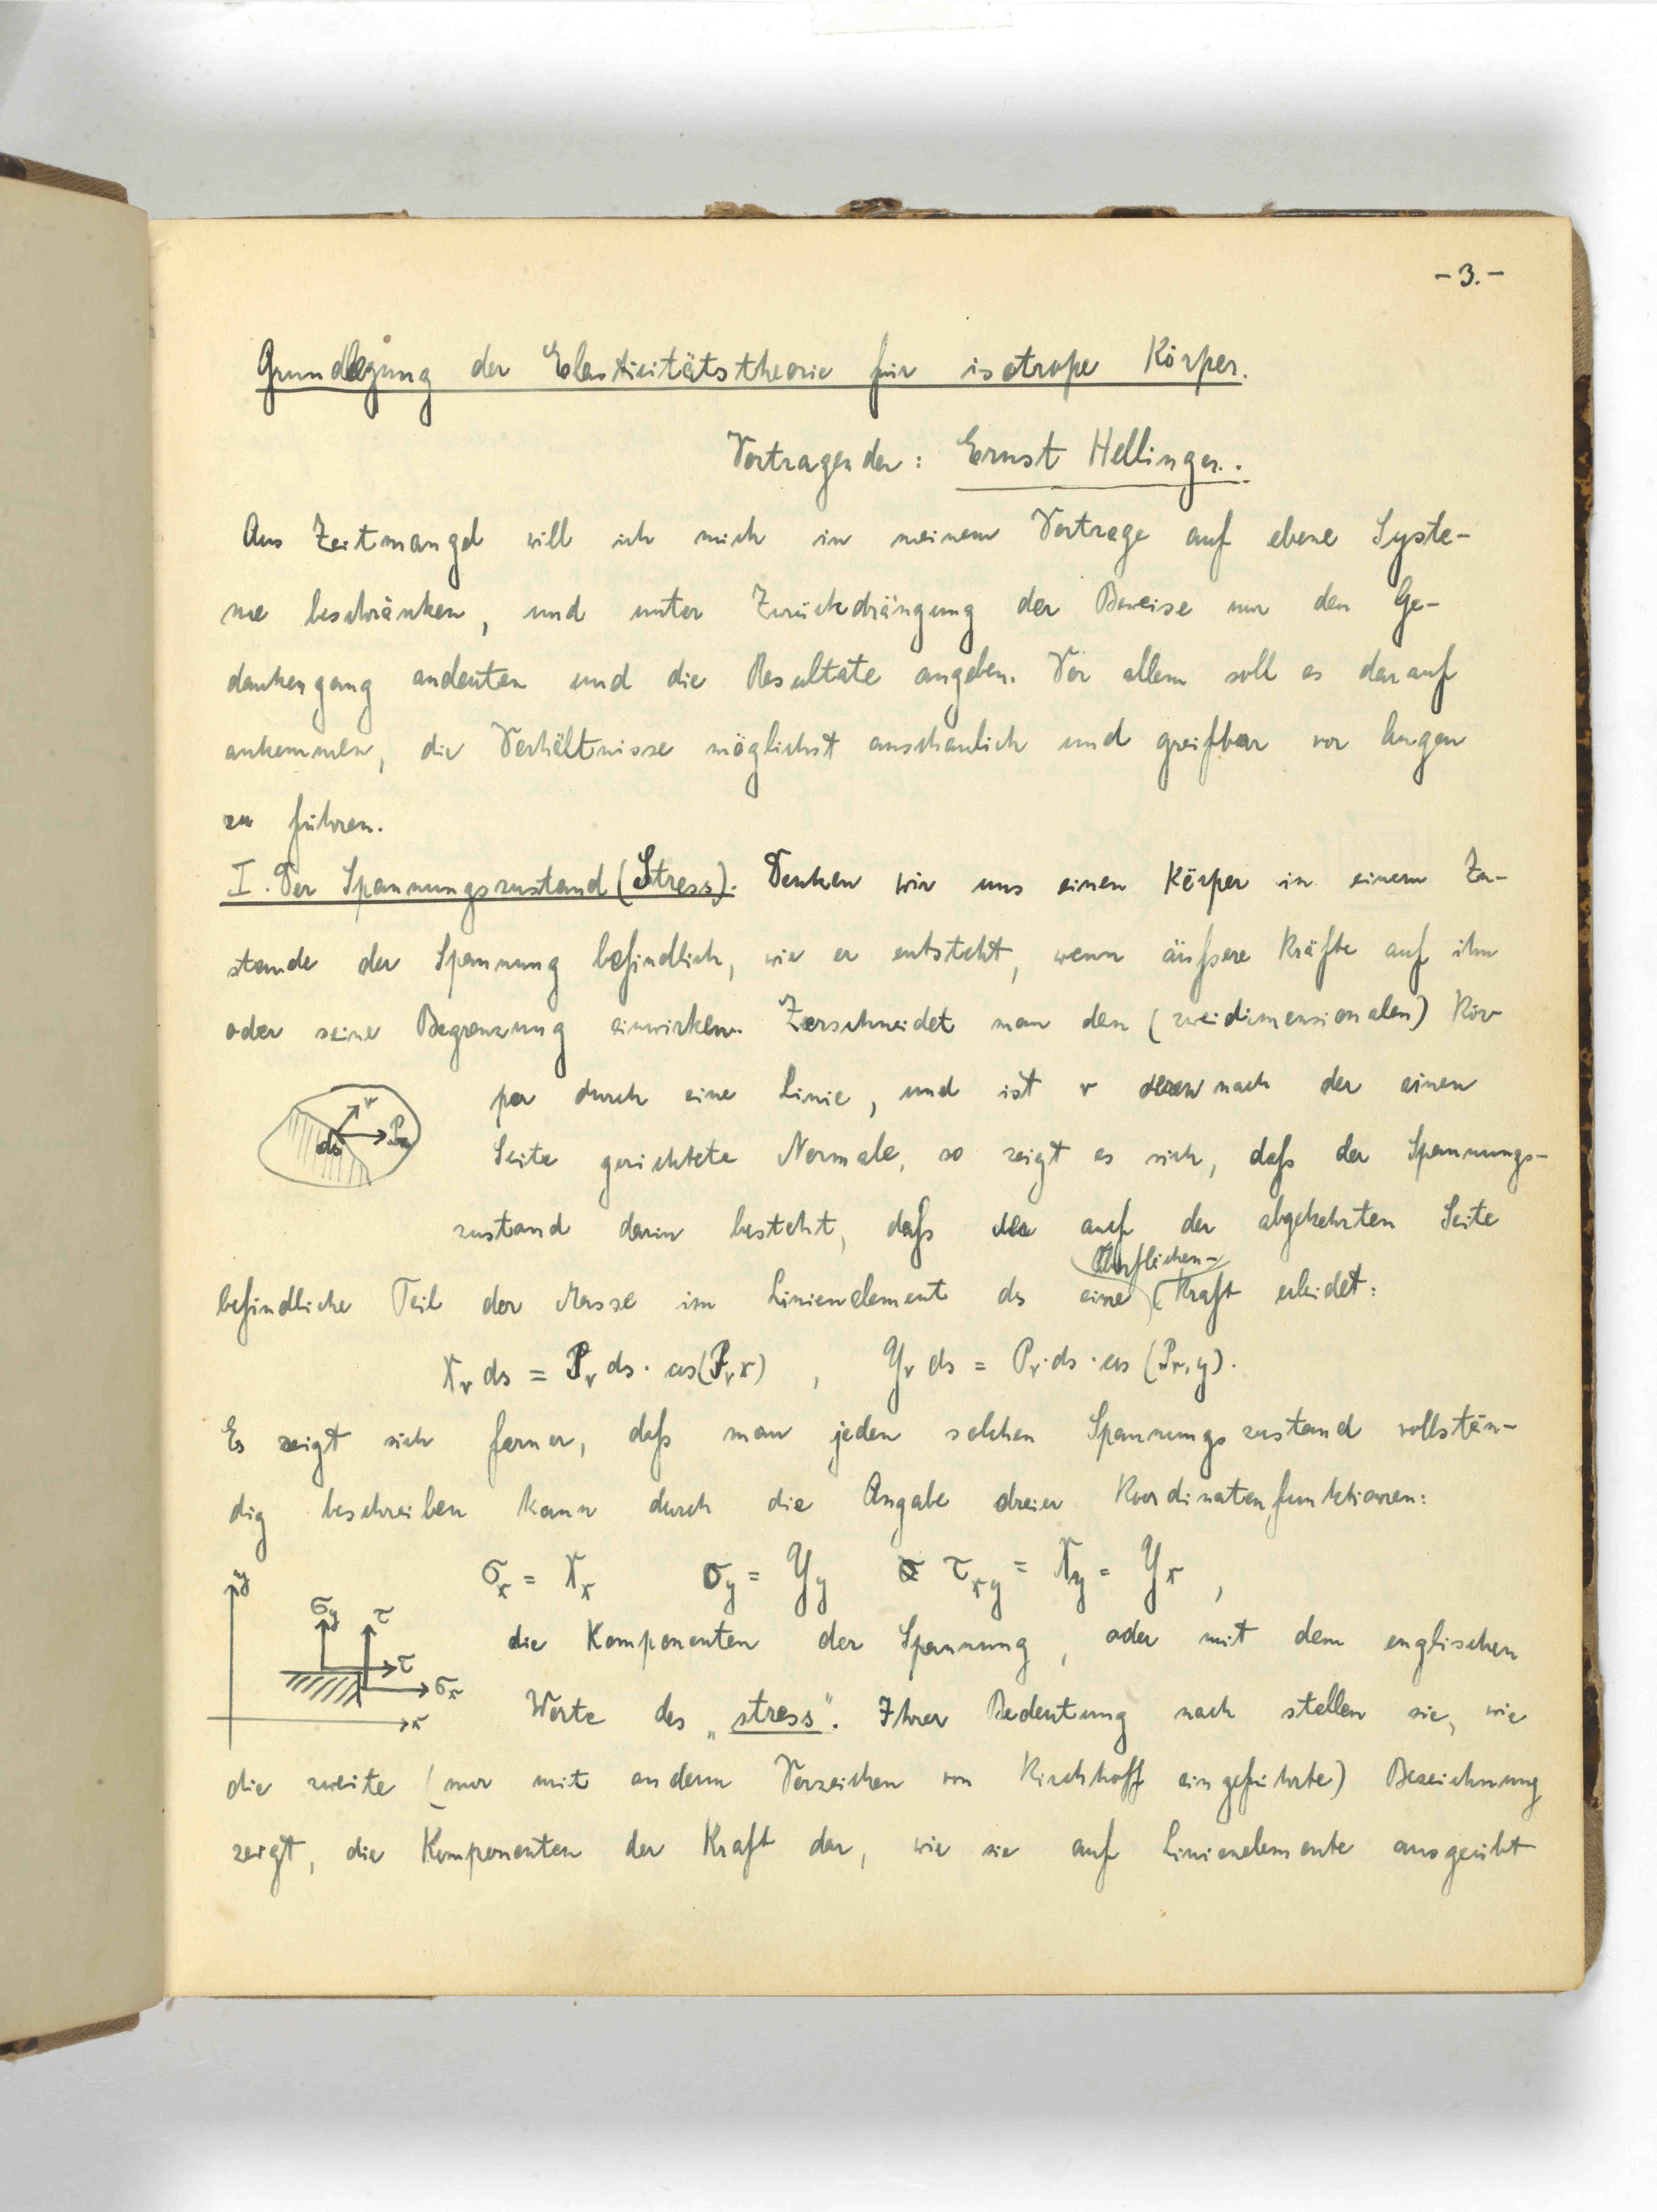 - 3. -
Grundlegung der Elasticitätstheorie für isotrope Körper.
Vortragender: Ernst Hellinger.
Aus Zeitmangel will ich mich in meinem Vortrage auf ebene Syste-
me beschränken, und unter Zurückdrängung der Beweise nur den Ge-
dankengang andeuten und die Resultate angeben. Vor allem soll es darauf
ankommen, die Verhältnisse möglichst anschaulich und greifbar vor Augen
zu führen.
I. Der Spannungszustand (Stress). Denken wir uns einen Körper in einem Zu-
stande der Spannung befindlich, wie er entsteht, wenn äußere Kräfte auf ihn
oder seine Begrenzung einwirken. Zerschneidet man den (zweidimensionalen) Kör
per durch eine Linie, und ist ν deren nach der einen
Seite gerichtete Normale, so zeigt es sich, daß der Spannungs-
zustand darin besteht, daß der auf der abgekehrten Seite
befindliche Teil der Masse im Linienelement ds eine (Kraft erleidet:
X_ν ds = P_ν ds · cos(P_ν x) , Y_ν ds = P_ν · ds · cos (P_ν, y).
Es zeigt sich ferner, daß man jeden solchen Spannungszustand vollstän-
dig beschreiben kann durch die Angabe dreier Koordinatenfunktionen:
σ_x = X_x σ_y = Y_y τ_xy = X_y = Y_x ,
y σ_y τ τ σ_x x
die Komponenten der Spannung, oder mit dem englischen
Worte des „stress“. Ihrer Bedeutung nach stellen sie, wie
die zweite (nur mit anderm Vorzeichen von Kirchhoff eingeführte) Bezeichnung
zeigt, die Komponenten der Kraft dar, wie sie auf Linienelemente ausgeübt